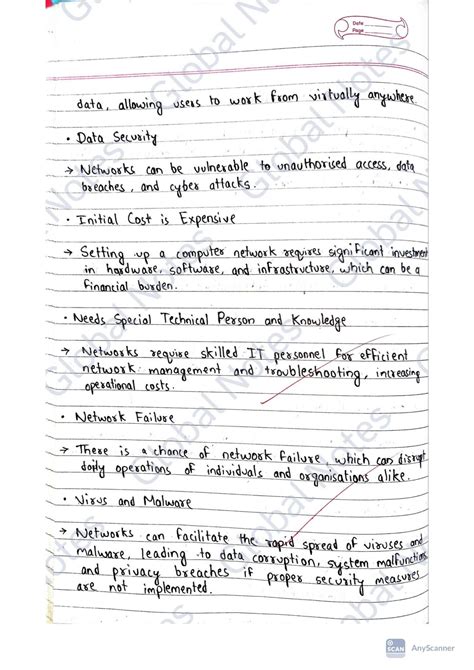 Date
Page
data, allowing users to work from virtually anywhere
• Data Security
→ Networks can be vulnerable to unauthorised access, data
breaches, and cyber attacks.
• Initial Cost is Expensive
→ Setting up a computer network requires significant investment
in hardware, software, and infrastructure, which can be a
financial burden.
• Needs Special Technical Person and Knowledge
→ Networks require skilled IT personnel for efficient
network management and troubleshooting, increasing
operational costs.
• Network Failure
→ There is a chance of network failure which can disrupt
daily operations of individuals and organisations alike.
• Virus and Malware
→ Networks can facilitate the rapid spread of viruses and
malware, leading to data corruption, system malfunctions
and privacy breaches if proper security measures
are not implemented.
Global Notes
Global Notes
Global Notes
Global Notes
SCAN
AnyScanner